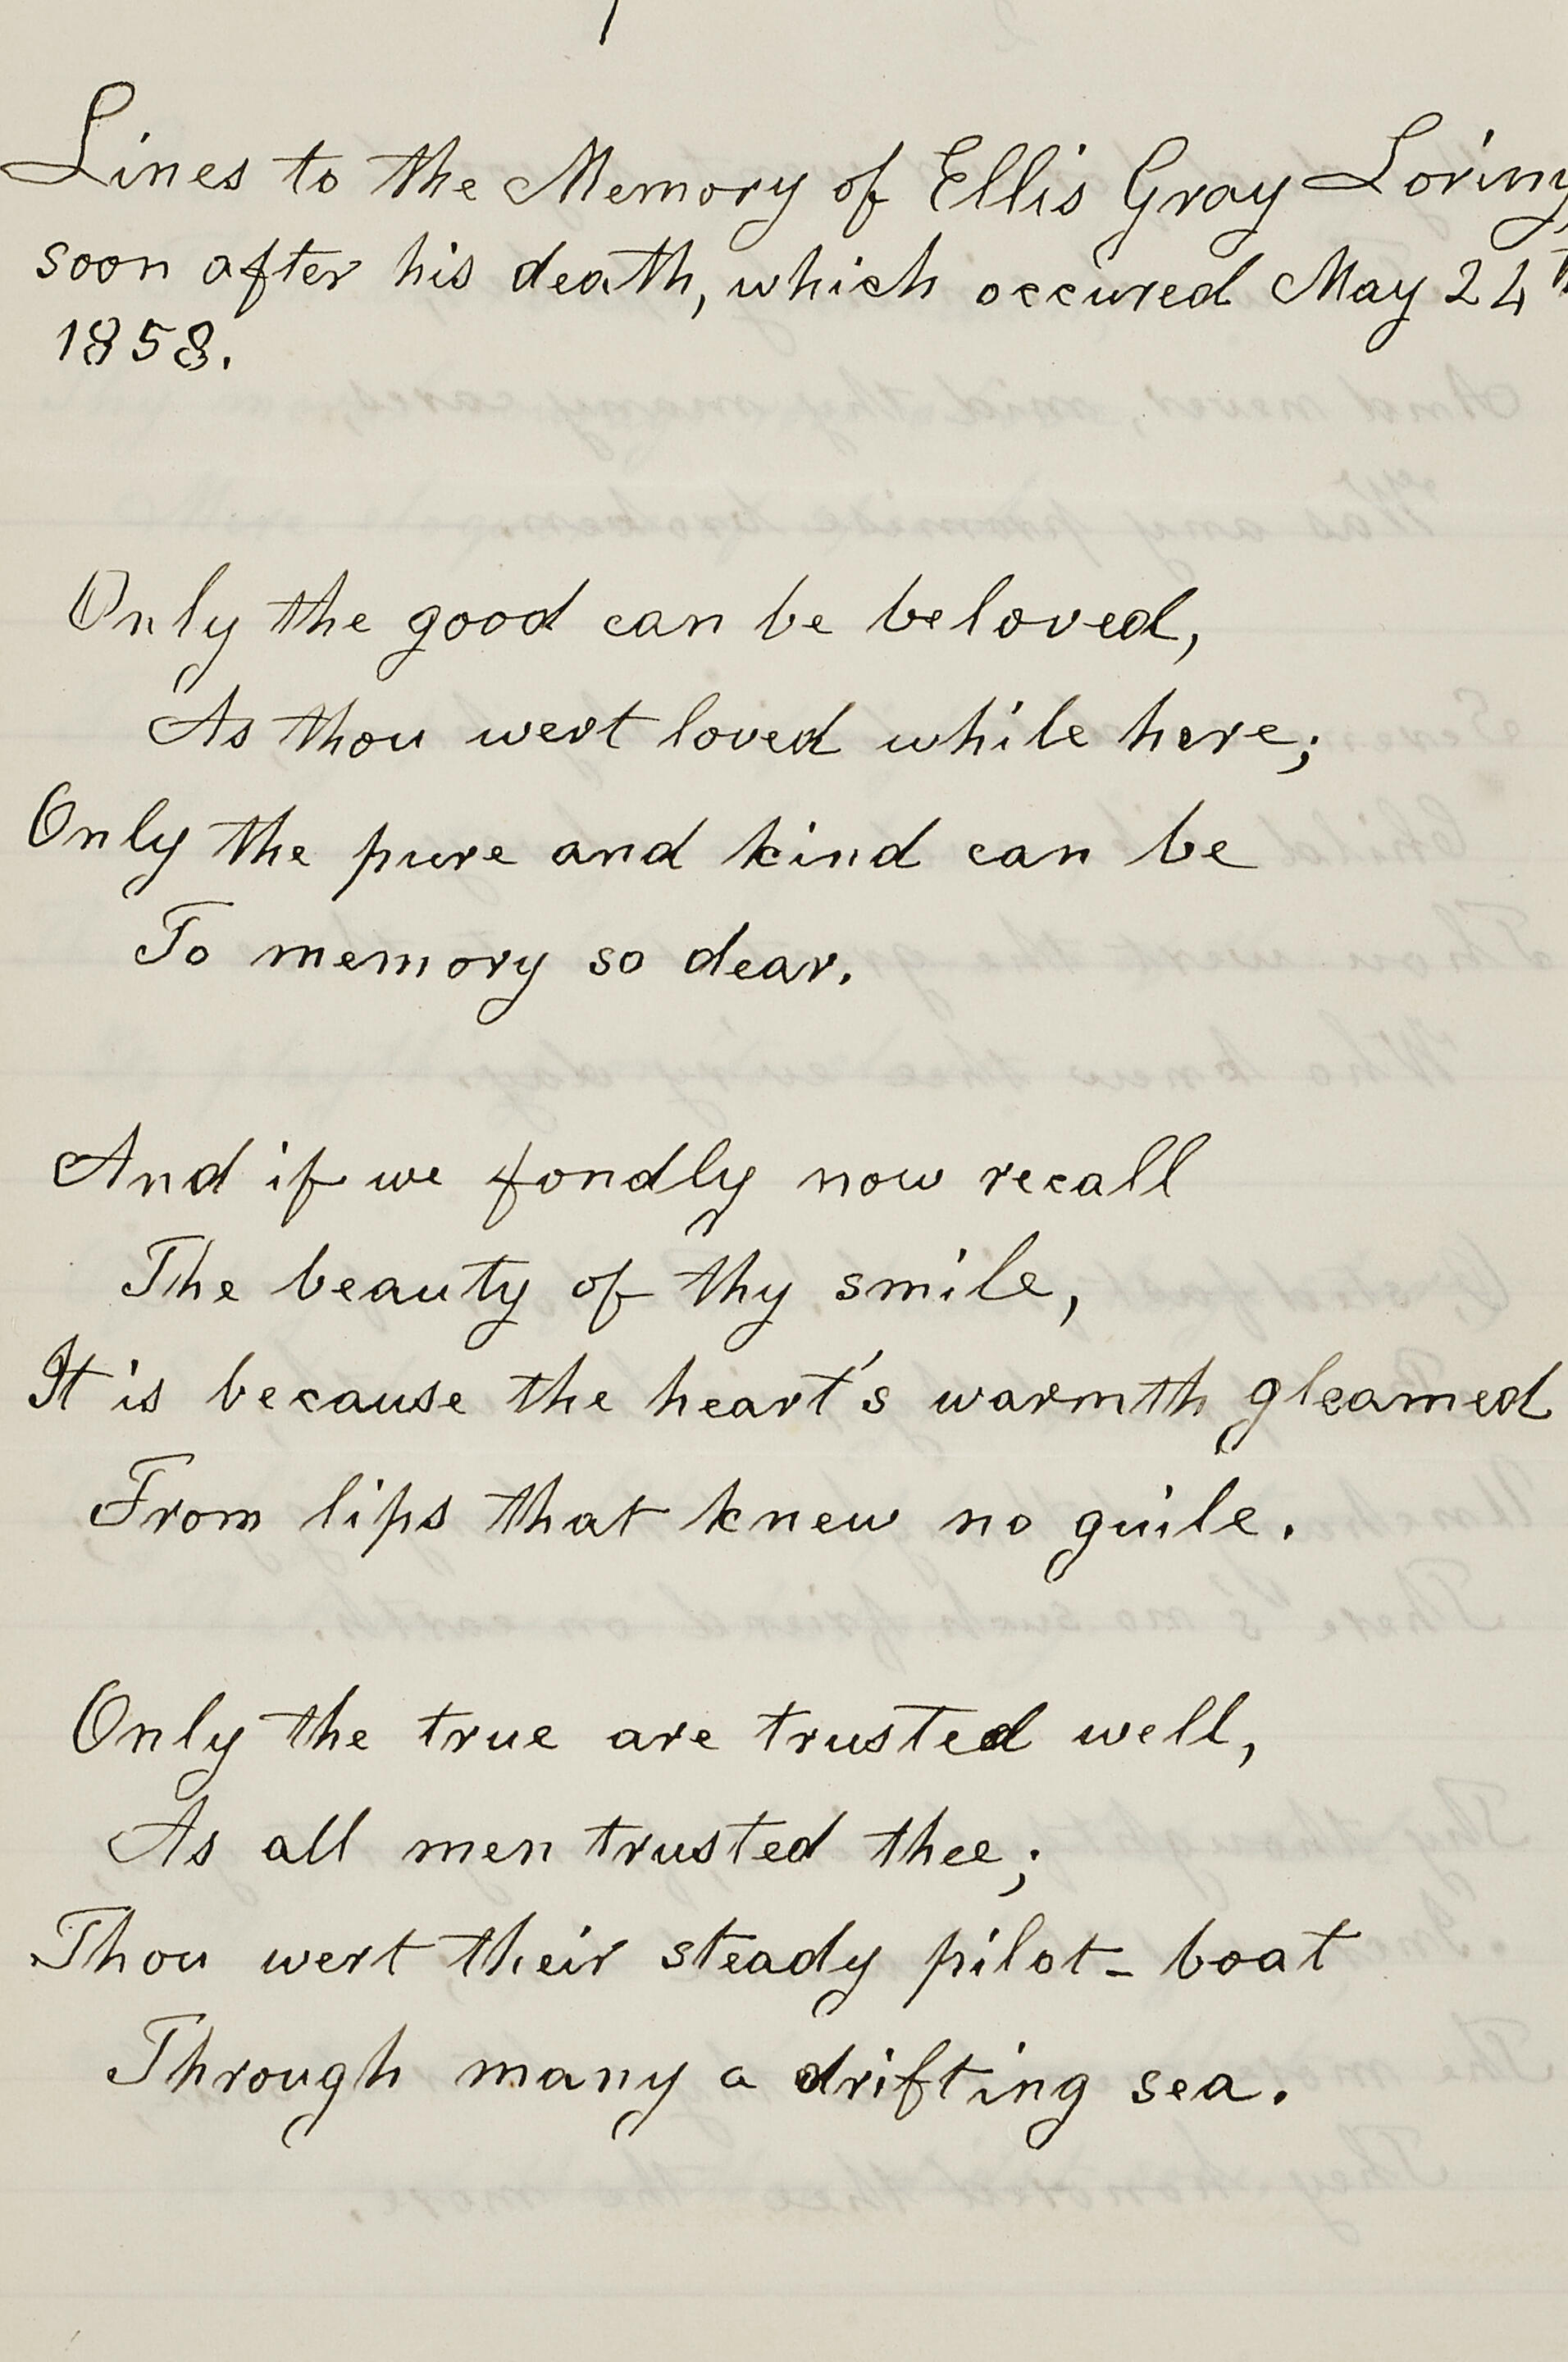 Lines to the Memory of Ellis Gray Loring,
soon after his death, which occured May 24th
1858.
Only the good can be beloved,
As thou wert loved while here;
Only the pure and kind can be
To memory so dear.
And if we fondly now recall
The beauty of thy smile,
It is because the heart's warmth gleamed
From lips that knew no guile.
Only the true are trusted well,
As all men trusted thee;
Thou wert their steady pilot-boat
Through many a drifting sea.